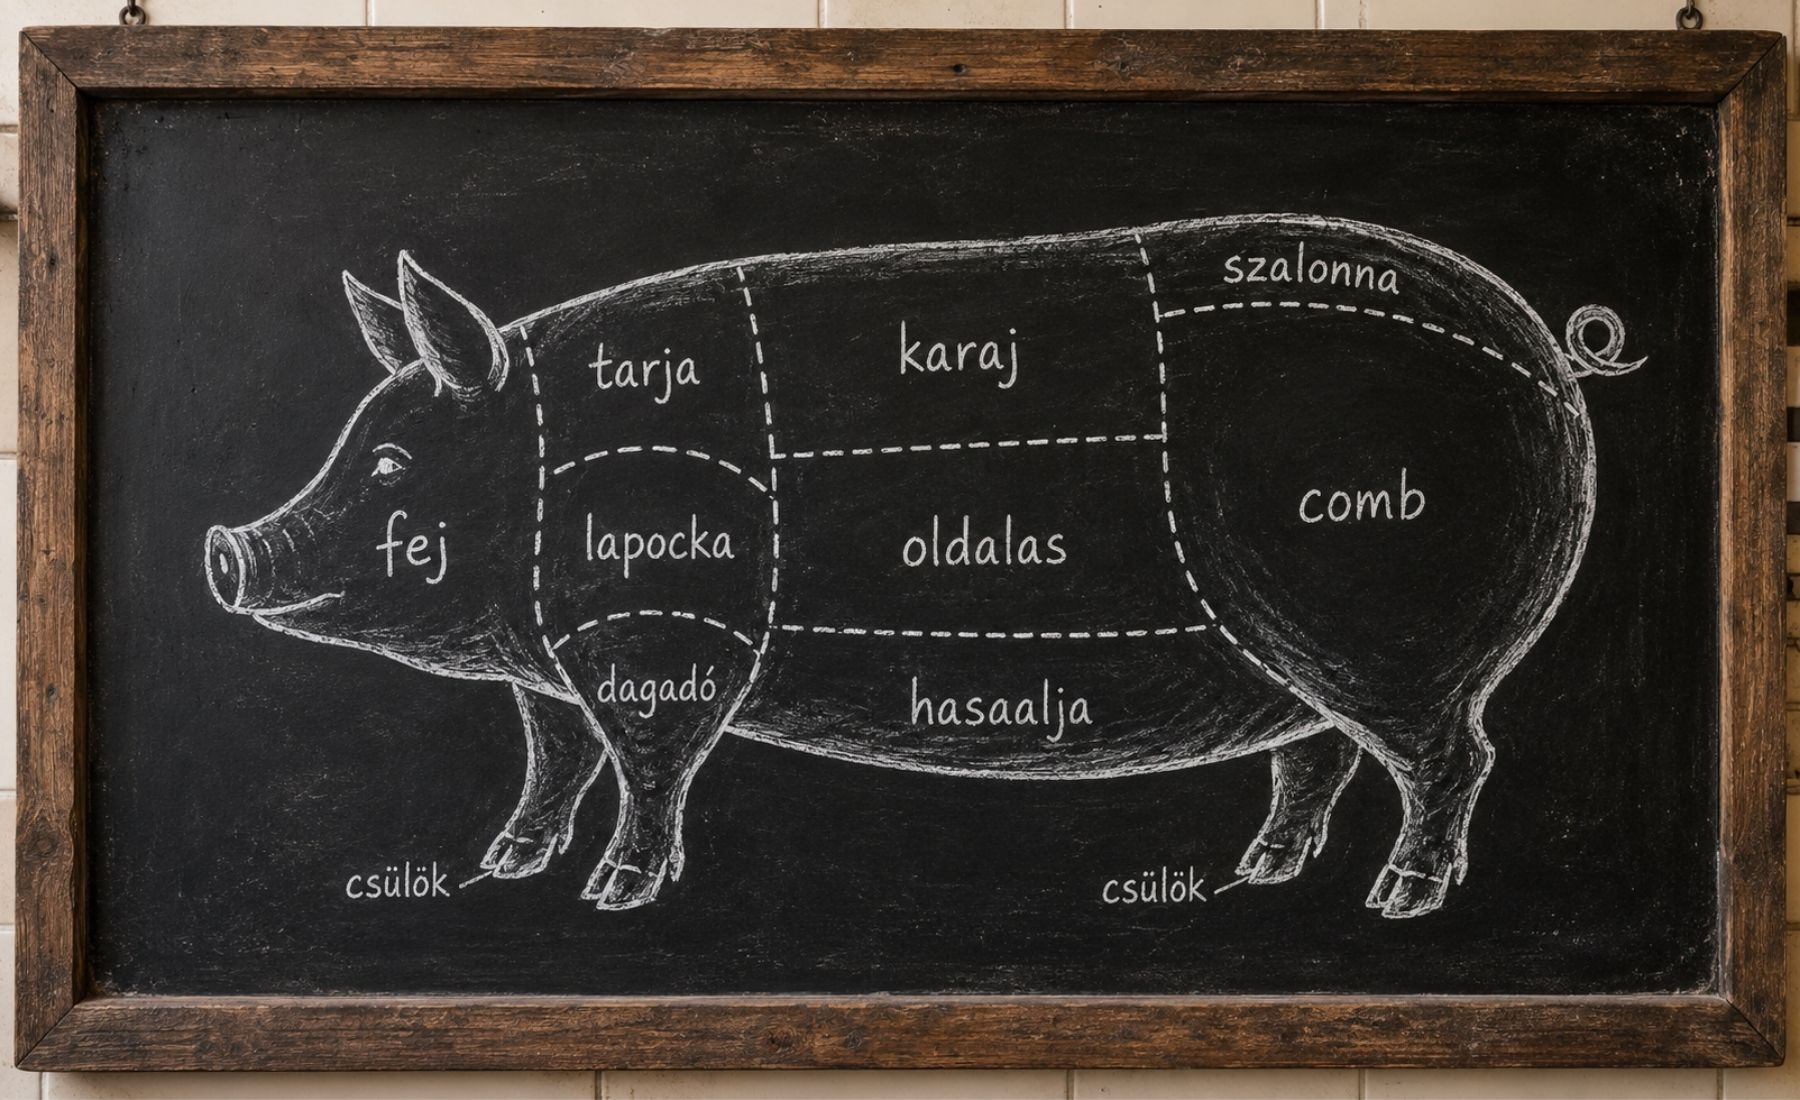 szalonna
tarja
karaj
comb
fej
lapocka
oldalas
dagadó
hasaalja
csülök
csülök